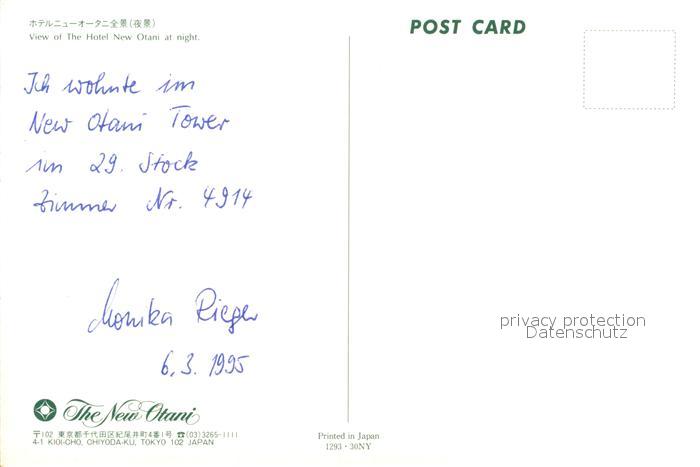 ホテルニューオータニ全景(夜景)
View of The Hotel New Otani at night.
POST CARD
Ich wohnte im
New Otani Tower
im 29. Stock
Zimmer Nr. 4914
Monika Rieger
6.3.1995
privacy protection
Datenschutz
The New Otani
〒102 東京都千代田区紀尾井町4番1号 ☎(03)3265-1111
4-1 KIOI-CHO, CHIYODA-KU, TOKYO 102 JAPAN
Printed in Japan
1293・30NY